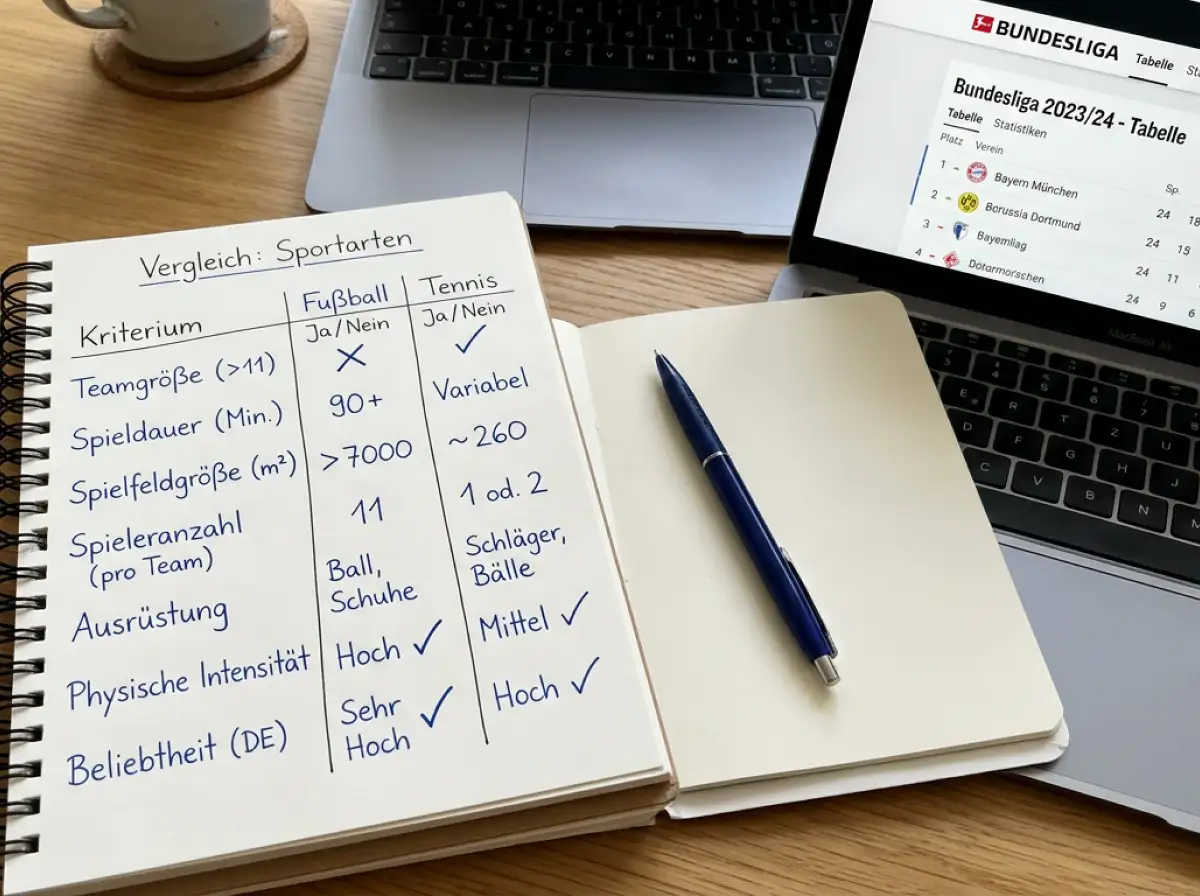 Vergleich: Sportarten
Kriterium Fußball Tennis
Ja/Nein Ja/Nein
Teamgröße (>11) ✗ ✓
Spieldauer (Min.) 90+ Variabel
Spielfeldgröße (m²) >7000 ~260
Spieleranzahl (pro Team) 11 1 od. 2
Ausrüstung Ball, Schuhe Schläger, Bälle
Physische Intensität Hoch ✓ Mittel ✓
Beliebtheit (DE) Sehr Hoch ✓ Hoch ✓
BUNDESLIGA Tabelle
Bundesliga 2023/24 - Tabelle
Tabelle Statistiken
Platz Verein Sp.
1 - Bayern München 24 18
2 - Borussia Dortmund 24 15
3 - Bayemllag 24 11
4 - Dotarmorschen 24 9 6
MacBook Air